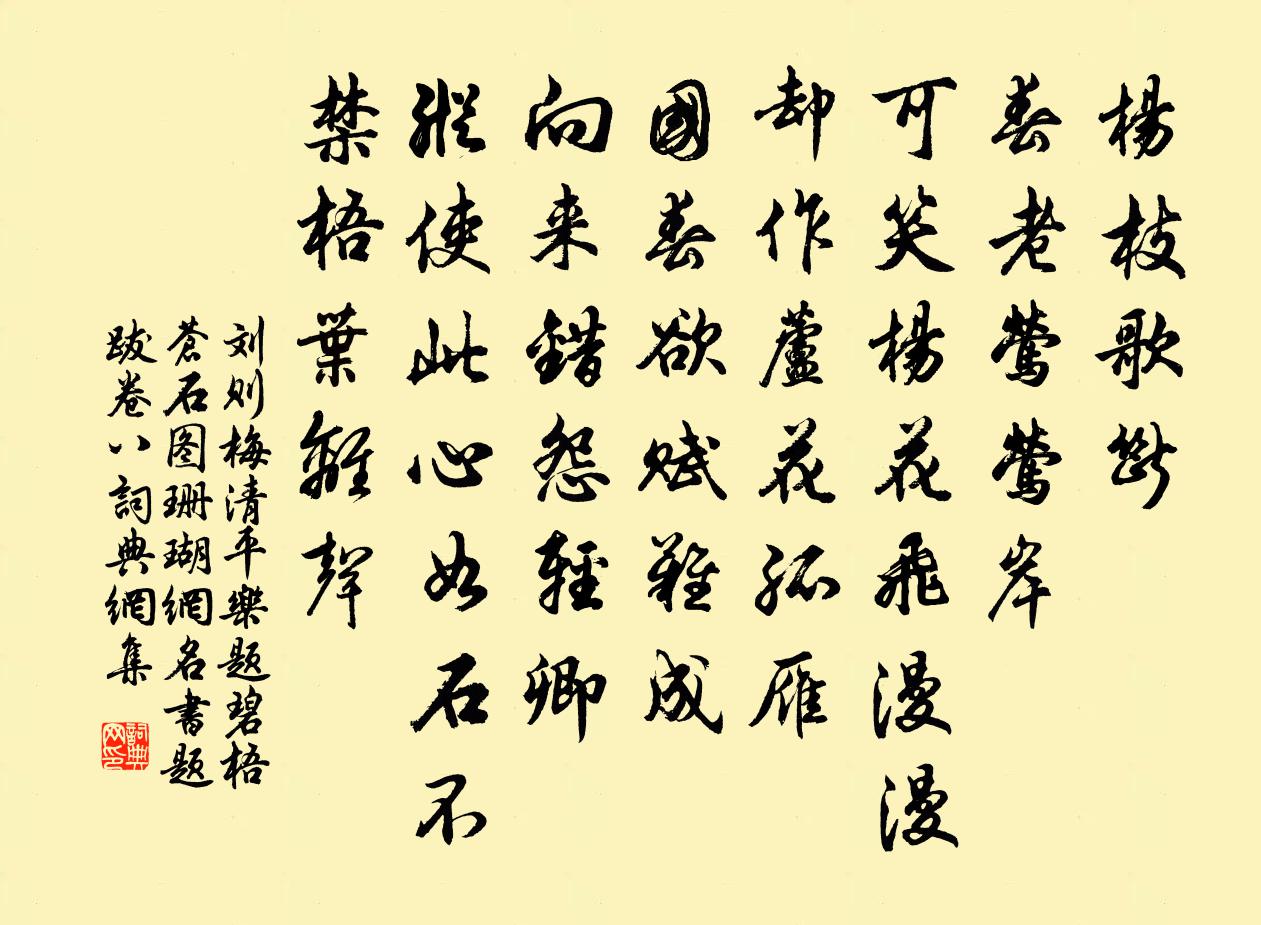 楊枝歌斷
春老鶯鶯岸
可笑楊花飛漫漫
却作蘆花孤雁
國春欲賦難成
向来錯怨輕卿
縱使此心如石不
禁梧葉離聲
刘则梅清平樂题碧梧
蒼石图珊瑚網名書题
跋卷八詞典網集
詞典网印